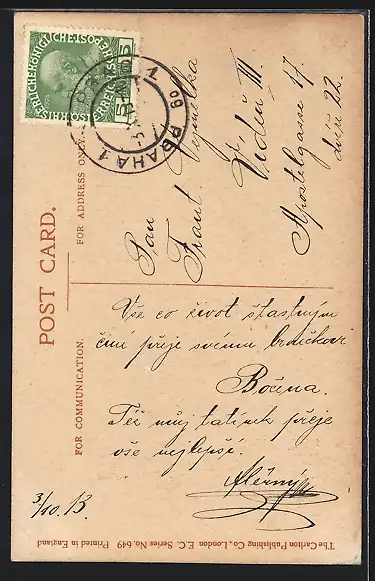 POST CARD.
FOR COMMUNICATION.
FOR ADDRESS ONLY.
PRAHA 1
5
Pan
Frant. Vejmelka
Vídeň III.
Apostelgasse 17.
dvéře 22.
Vše co život šťastným
činí přeje svému bratříčkovi
Božena.
Též můj tatínek přeje
vše nejlepší.
3/10. 13.
The Carlton Publishing Co., London E.C. Series No. 649 Printed in England